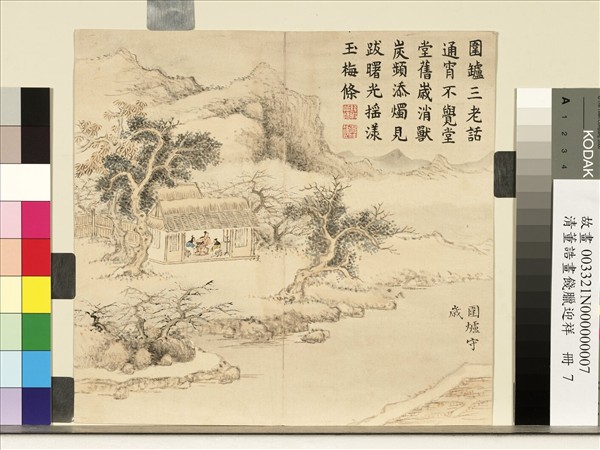 圍鑪三老話
通宵不覺堂
堂舊歲消獸
炭頻添燭見
跋曙光摇漾
玉梅條
圍爐守
歲
KODAK
A 1 2 3 4
故畫 003321N000000007
清董誥畫餞臘迎祥 冊 7